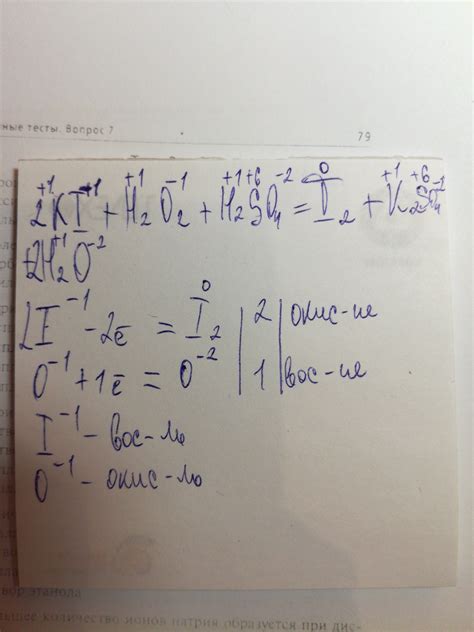 ные тесты. Вопрос 7 79
2K⁺¹I⁺¹ + H₂⁺¹O₂⁻¹ + H₂⁺¹S⁺⁶O₄⁻² = I₂⁰ + K₂⁺¹S⁺⁶O₄⁻²
+2H₂⁺¹O⁻²
2I⁻¹ - 2ē = I₂⁰ | 2 | окис-ие
O⁻¹ + 1ē = O⁻² | 1 | вос-ие
I⁻¹ - вос-ль
O⁻¹ - окис-ль
вор этанола
льшее количество ионов натрия образуется при дис-